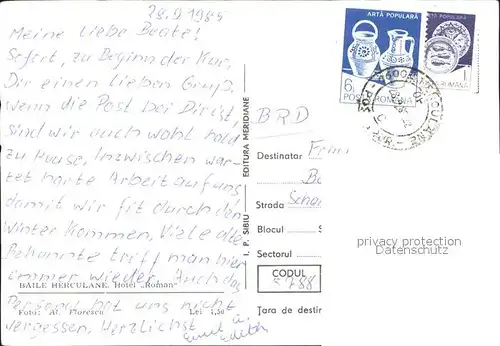 28.9.1985
Meine liebe Beate!
Sofort, zu Beginn der Kur,
Dir einen lieben Gruß.
Wenn die Post bei Dir ist,
sind wir auch wohl bald
zu Hause. Inzwischen war-
tet harte Arbeit auf uns
damit wir fit durch den
Winter kommen. Viele alte
Bekannte trifft man hier
immer wieder. Auch das
BAILE HERCULANE. Hotel „Roman”
Personal hat uns nicht
Foto: Al. Florescu Lei 1,50
vergessen. Herzlichst
Edith
I. P. SIBIU EDITURA MERIDIANE
ARTĂ POPULARĂ
6L
POSTA ROMANA
ARTĂ POPULARĂ
1L
ROMANA
BRD
Destinatar
Strada
Blocul
Sectorul
CODUL
5788
Țara de destin
privacy protection
Datenschutz